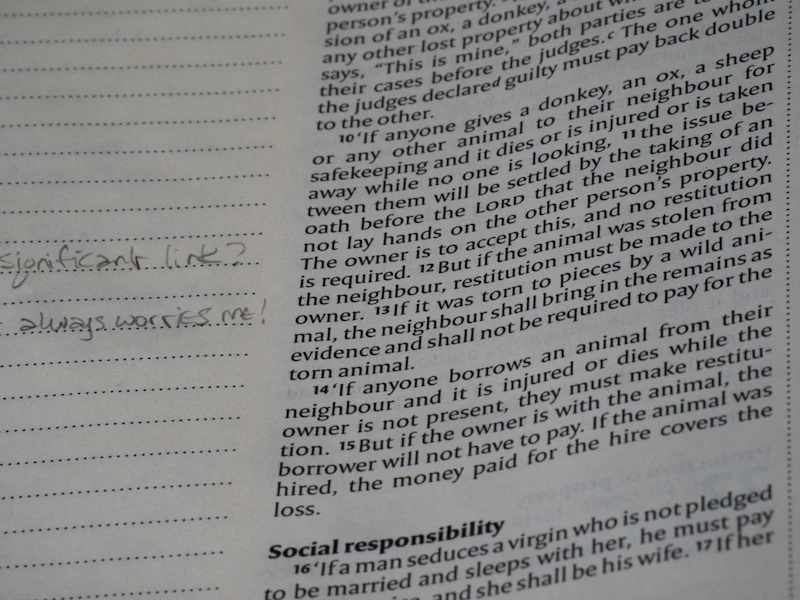 significant link?
always worries me!
person's property.
sion of an ox, a donkey, a
any other lost property about
says, "This is mine," both parties are to
their cases before the judges.c The one whom
the judges declared guilty must pay back double
to the other.
10 'If anyone gives a donkey, an ox, a sheep
or any other animal to their neighbour for
safekeeping and it dies or is injured or is taken
away while no one is looking, 11 the issue be-
tween them will be settled by the taking of an
oath before the LORD that the neighbour did
not lay hands on the other person's property.
The owner is to accept this, and no restitution
is required. 12 But if the animal was stolen from
the neighbour, restitution must be made to the
owner. 13 If it was torn to pieces by a wild ani-
mal, the neighbour shall bring in the remains as
evidence and shall not be required to pay for the
torn animal.
14 'If anyone borrows an animal from their
neighbour and it is injured or dies while the
owner is not present, they must make restitu-
tion. 15 But if the owner is with the animal, the
borrower will not have to pay. If the animal was
hired, the money paid for the hire covers the
loss.
Social responsibility
16 'If a man seduces a virgin who is not pledged
to be married and sleeps with her, he must pay
and she shall be his wife. 17 If her